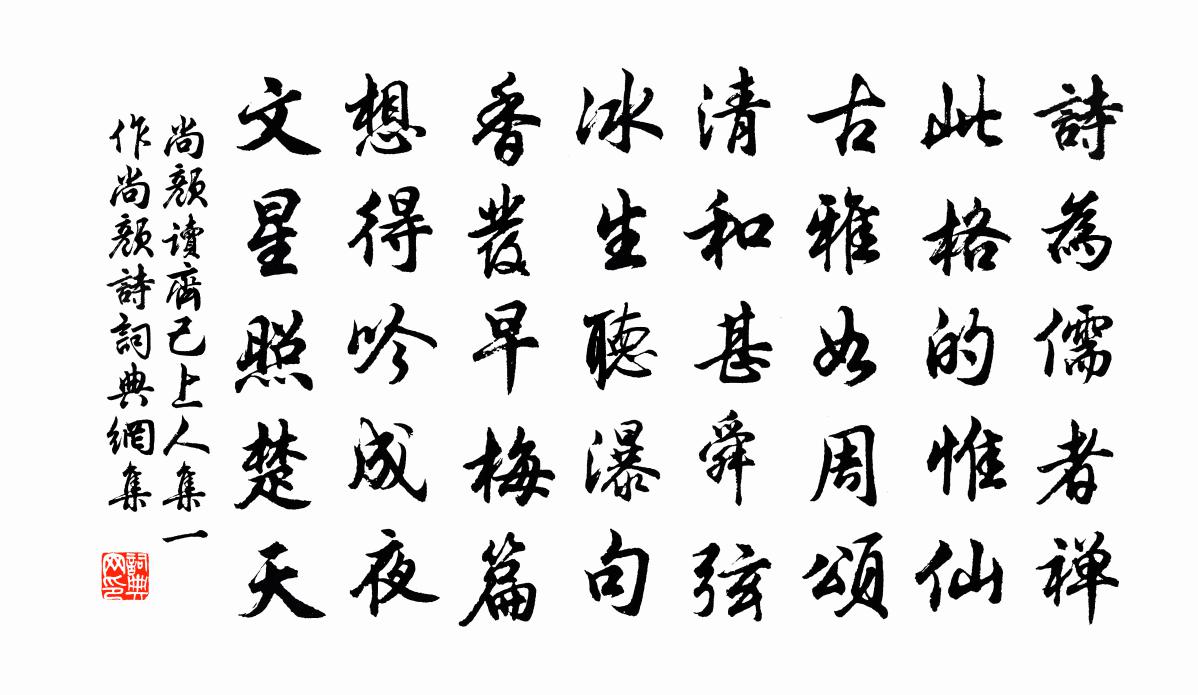 詩為儒者禅
此格的惟仙
古雅如周頌
清和甚舜弦
冰生聴瀑句
香發早梅篇
想得吟成夜
文星照楚天
尚顏讀齊己上人集一
作尚顏詩詞典網集
詞典
网印